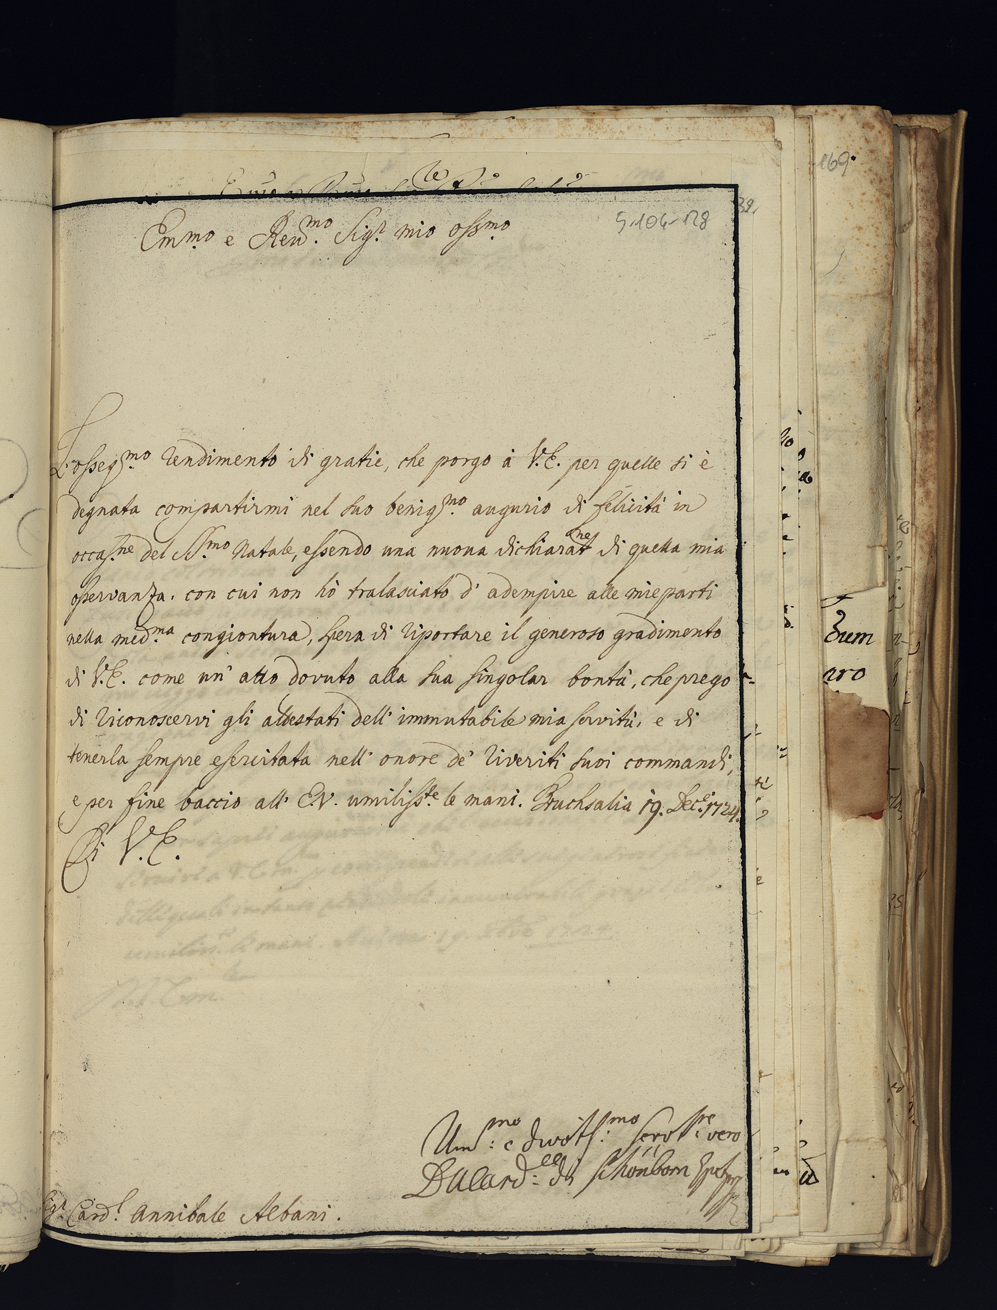 169.
5-106-128
39.
Em:mo e Reu:mo Sig:r mio oss:mo
L'osseq:mo rendimento di gratie, che porgo à V.E. per quelle si è
degnata compartirmi nel suo benig:mo augurio di felicità in
occas:ne del S:mo Natale, essendo una nuova dichiarat:ne di quella mia
osservanza, con cui non hò tralasciato d'adempire alle mie parti
nella med:ma congiontura, spera di riportare il generoso gradimento
di V.E. come un' atto dovuto alla sua singolar bontà, che prego
di riconoscervi gli attestati dell' immutabile mia servitù, e di
tenerla sempre esercitata nell' onore de' riveriti suoi commandi,
e per fine baccio all' E.V. umiliss:te le mani. Bruchsalia 19. Dec:e 1724.
Di V.E.
Um:mo e divotiss:mo serv:re vero
Card:le di Schönborn
Sig:r Card:l Annibale Albani.